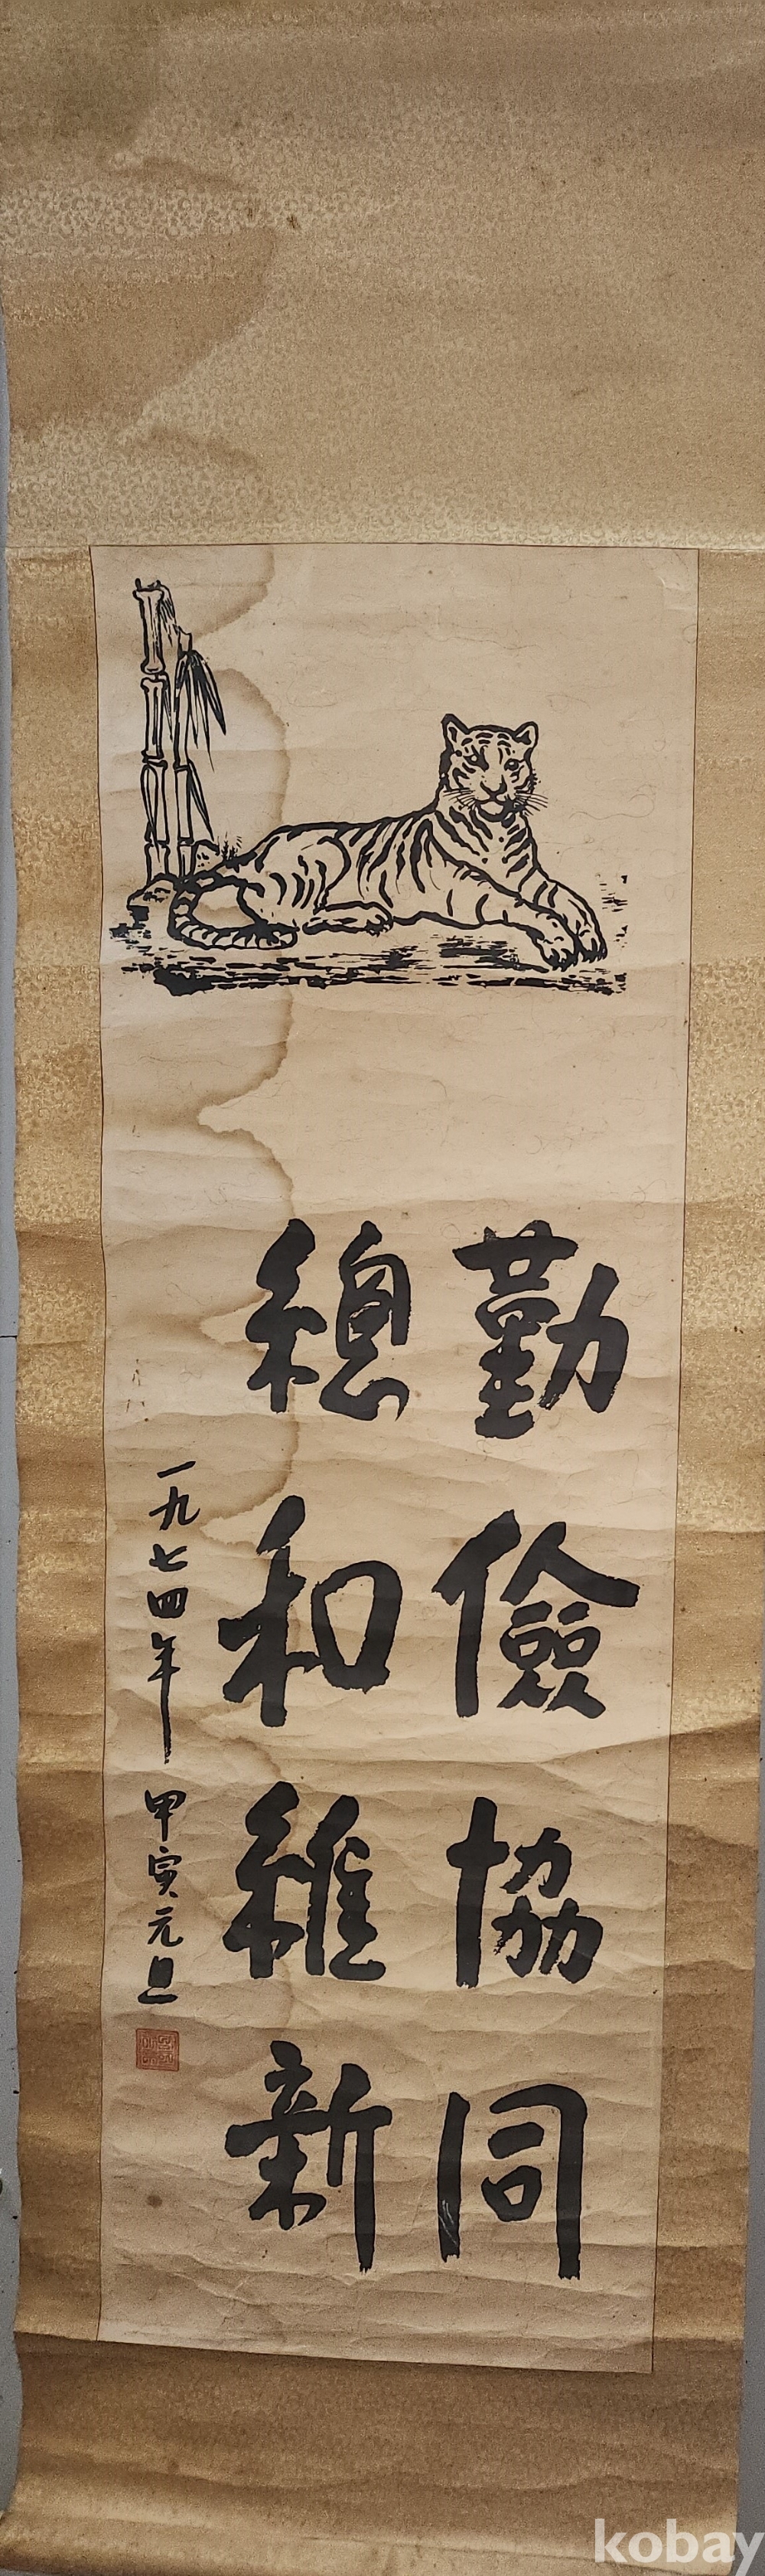 勤儉協同
總和維新
一九七四年 甲寅元旦
kobay